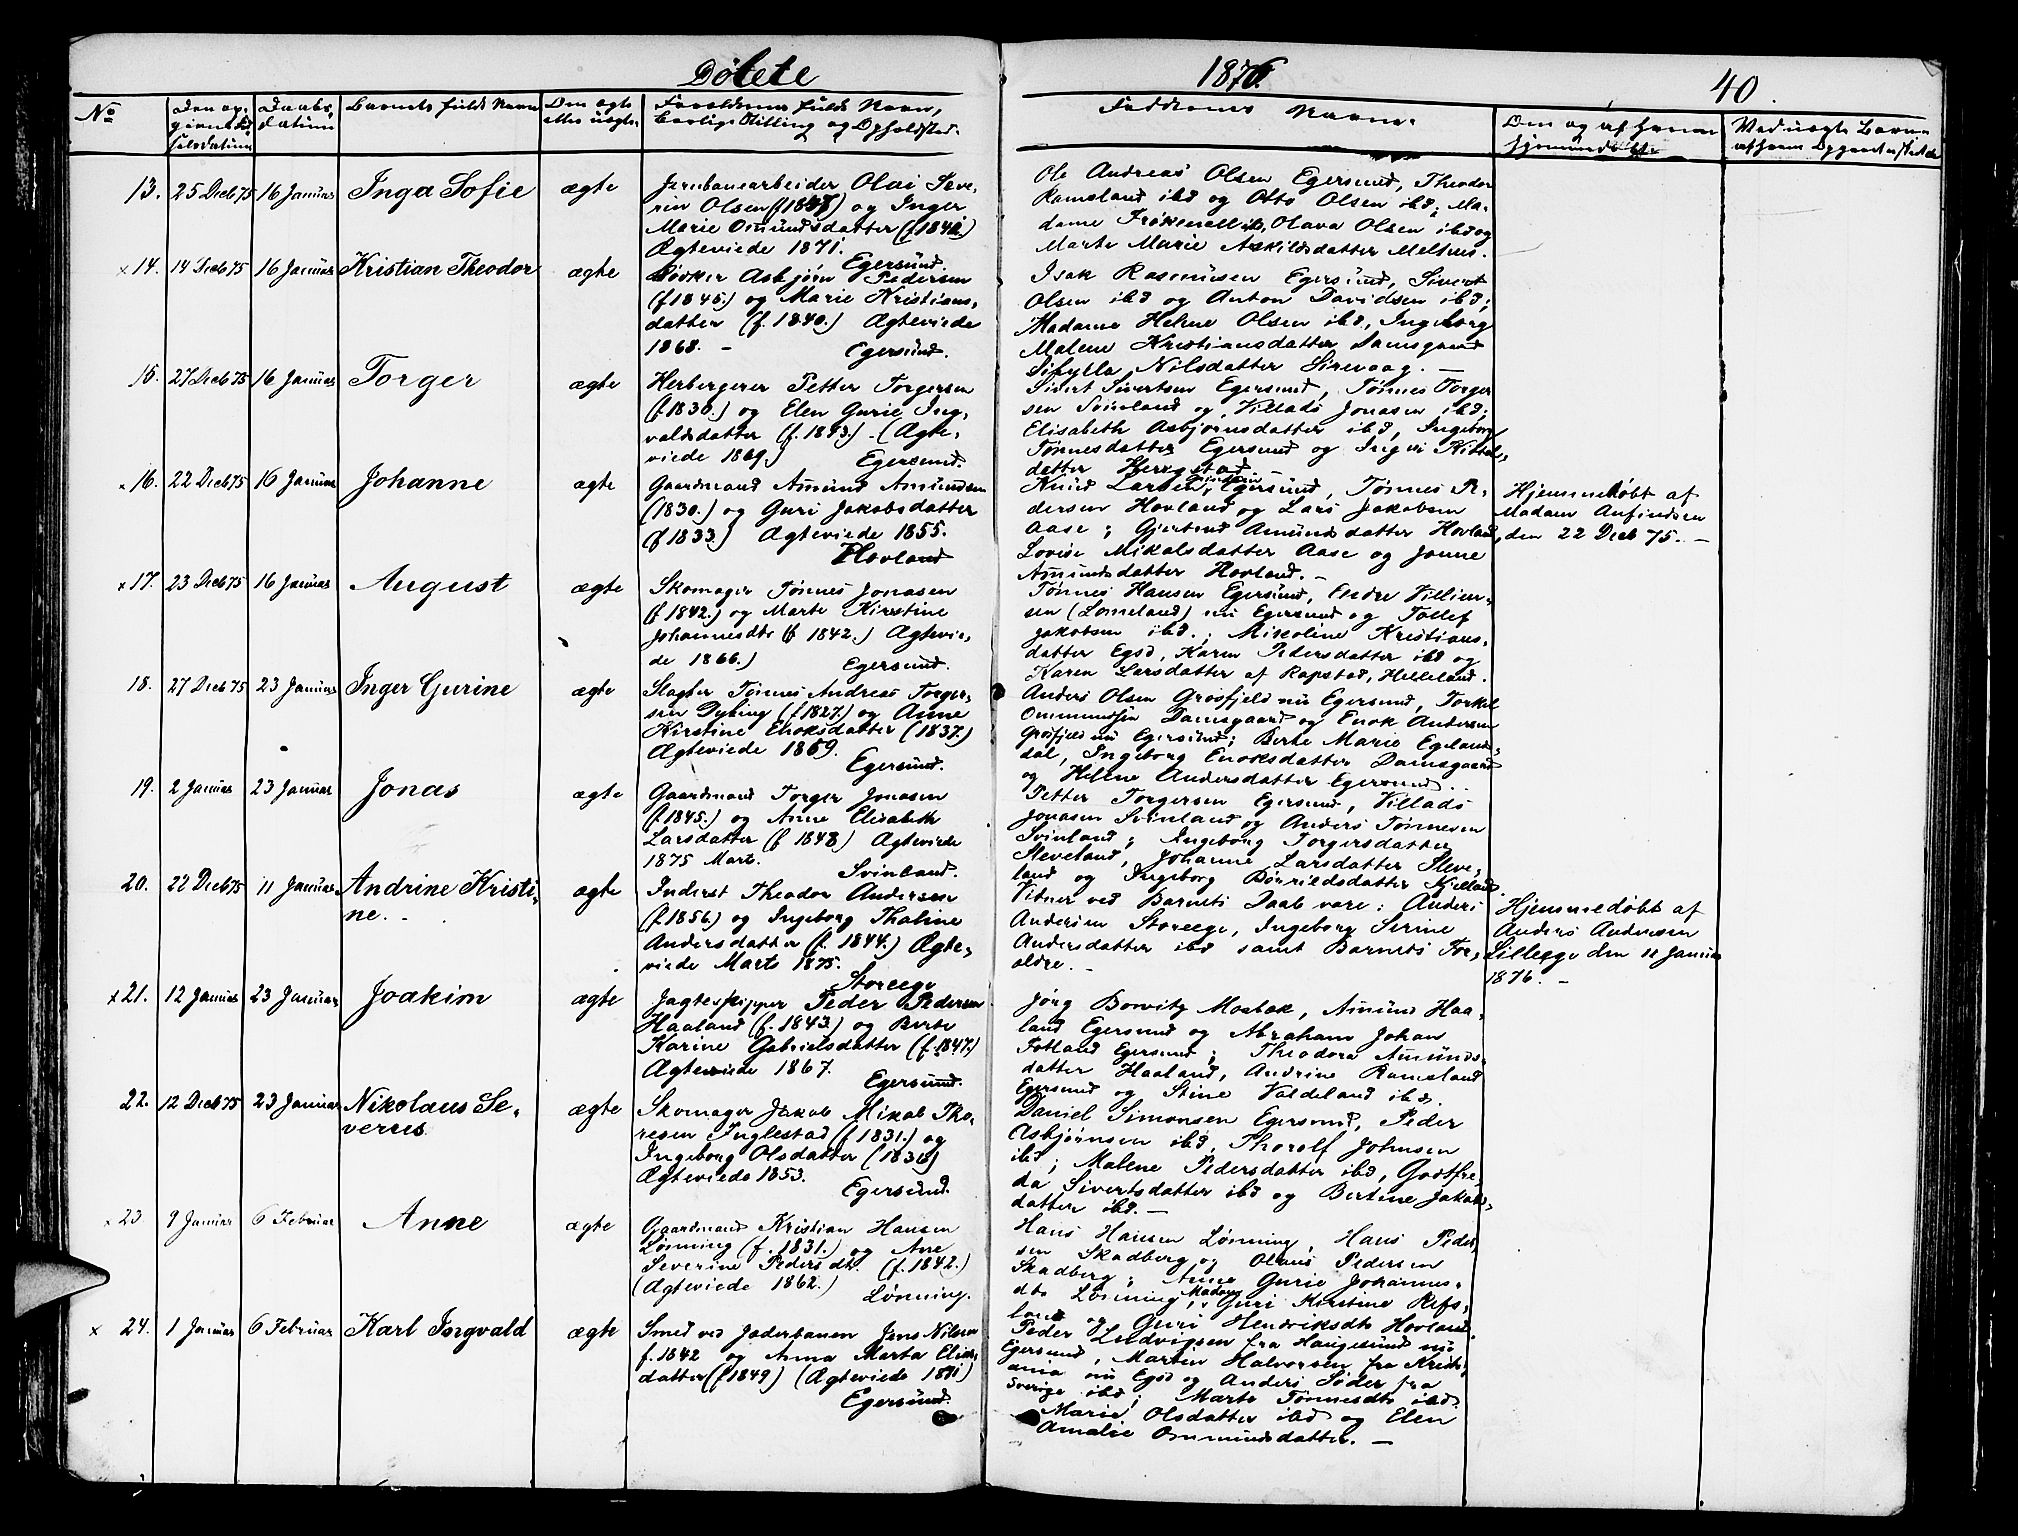 Døbte
1876.
40.
No
Den op-
givne Fød
selsdatum
Daabs-
datum
Barnets fulde Navn
Om ægte
eller uægte.
Forældrenes fulde Navn,
borlige Stilling og Opholdsted.
Faddernes Navne.
Om og af hvem
hjemmedøbt
Ved uægte Børn
13.
25 Decb 75
16 Januar
Inga Sofie
ægte
Jernbanearbeider Olai Seve-
rin Olsen (f 1847) og Inger
Marie Omundsdatter (f.1842.)
Ægteviede 1871.
Egersund.
Ole Andreas Olsen Egersund, Theodor
Ramsland ibd og Otto Olsen ibd; Ma-
dame ibd, Olava Olsen ibd og
Marte Marie Askildsdatter
x 14.
14 Decb 75
16 Januar
Kristian Theodor
ægte
Asbjørn Pedersen
(f 1845.) og Marie Kristians-
datter (f. 1840.) Ægteviede
1868. –
Egersund.
Isak Rasmussen Egersund, Sivert
Olsen ibd og Anton Davidsen ibd;
Madame Helene Olsen ibd, Ingeborg
Malene Kristiansdatter Damsgaard
Sibylla Nilsdatter Sirevaag. –
15.
27 Decb 75
16 Januar
Torger
ægte
Herbergerer Petter Torgersen
(f 1830.) og Elen Gurie Ing-
valdsdatter (f. 1843.) - (Ægte-
viede 1869.)
Egersund.
Sivert Sivertsen Egersund, Tønnes Torger
sen Svinland og Villads Jonasen ibd;
Elisabeth Asbjørnsdatter ibd, Ingeborg
Tønnesdatter Egersund og Kittels-
datter
x 16.
22 Decb 75
16 Januar
Johanne
ægte
Gaardmand Amund Amundsen
(1830.) og Guri Jakobsdatter
(f 1833.) Ægteviede 1855.
Hovland
Knud Larsen, Egersund, Tønnes P.
dersen Hovland og Lars Jakobsen
Aase; Gjertrud Amundsdatter Hovland,
Lovise Mikalsdatter Aase og Jonne
Amundsdatter Hovland. –
Hjemmedøbt af
Madam Anfindsen
den 22 Decb 75. –
x 17.
23 Decb 75
16 Januar
August
ægte
Skomager Tønnes Jonasen
(f 1842.) og Marte Kirstine
Johannesdtr (f 1842.) Ægtevie-
de 1866.)
Egersund.
Tønnes Hansen Egersund, Endre Villum-
sen (Lomeland) nu Egersund og Tollef
Jakobsen ibd.; Mikoline Kristians-
datter Egsd, Karen Pedersdatter ibd og
Karen Larsdatter af Rapstad, Helleland.
18.
27 Decb 75
23 Januar
Inger Gurine
ægte
Slagter Tønnes Andreas Torger-
sen Dybing (f 1827.) og Anne
Kirstine Enoksdatter (1837.)
Ægteviede 1859.
Egersund.
Anders Olsen Grøsfjeld nu Egersund, Torkel
Ommundsen Damsgaard og Enok Andersen
Grøsfjeld nu Egersund; Berte Marie Egelands-
dal, Ingeborg Enoksdatter Damsgaard
og Helene Andersdatter Egersund. .
19.
2 Januar
23 Januar
Jonas
ægte
Gaardmand Torger Jonasen
(f. 1845.) og Anne Elisabeth
Larsdatter (f 1848) Ægteviede
1875 Marts.
Svinland.
Petter Torgersen Egersund, Villads
Jonasen Svinland og Anders Tønnesen
Svinland; Ingeborg Torgersdatter
Sleveland, Johanne Larsdatter Sleve-
land og Ingeborg Børildsdatter Kjelland.
20.
22 Decb 75
11 Januar
Andrine Kristi-
ne. -
ægte
Inderst Theodor Andersen
(f. 1856.) og Ingeborg Thaline
Andersdatter (f. 1844.) Ægte-
viede Marts 1875.
Storeege
Vitner ved Barnets Daab vare: Anders
Andersen Storeege, Ingeborg Serine
Andersdatter ibd samt Barnets For-
ældre. –
Hjemmedøbt af
Anders Andersen
Lilleege den 11 Januar
1876. –
x 21.
12 Januar
23 Januar
Joakim
ægte
Jagteskipper Peder Pedersen
Haaland (f. 1843.) og Berte
Karine Gabrielsdatter (f. 1847.)
Ægteviede 1867.
Egersund.
Jørg Mosbæk, Amund Haa-
land Egersund og Abraham Johan
Fotland Egersund; Theodora Amunds-
datter Haaland, Andrine Ramsland
Egersund og Stine Valdeland ibd.
22.
12 Decb 75
23 Januar
Nikolaus Se-
verus.
ægte
Skomager Jakob Mikal Tho-
resen Fuglestad (f 1831.) og
Ingeborg Olsdatter (1830)
Ægteviede 1853.
Egersund.
Daniel Simonsen Egersund, Peder
Asbjørnsen ibd, Thorolf Johnsen
ibd; Malene Pedersdatter ibd, Godtfre-
da Sivertsdatter ibd og Bertine Jakobs-
datter ibd. –
x 23.
9 Januar
6 Februar
Anne
ægte
Gaardmand Kristian Hansen
Lønning (f. 1831.) og Ane
Severine Pedersdtr. (f. 1842.)
(Ægteviede 1862.)
Lønning.
Hans Hansen Lønning, Hans Peder-
sen Skadberg og Olaus Pedersen
Skadberg; Anne Gurie Johannes-
dtr Lønning, Madam Guri Kirstine Refs-
land og Guri Hendriksdtr Hovland.
x 24.
1 Januar
6 Februar
Karl Ingvald
ægte
Smed ved Jæderbanen Jens Nilsen
f. 1842 og Anna Marta Elias-
datter (f 1849) (Ægteviede 1871)
Egersund.
Peder Ludvigsen fra Haugesund nu
Egersund, Martin Halvorsen fra Kristi-
ania nu Egsd og Anders Søder fra
Sverige ibd; Marte Tønnesdtr ibd.
Marie Olsdatter ibd og Elen
Amalie Ommundsdatter. –